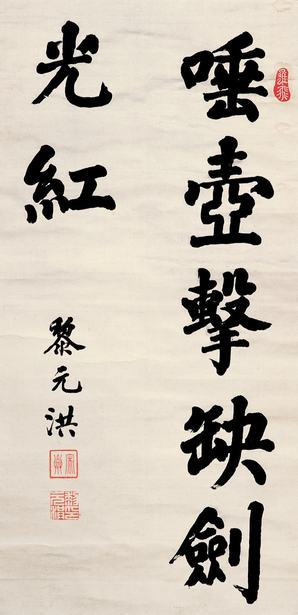 唾壺擊缺劍
光紅
黎元洪